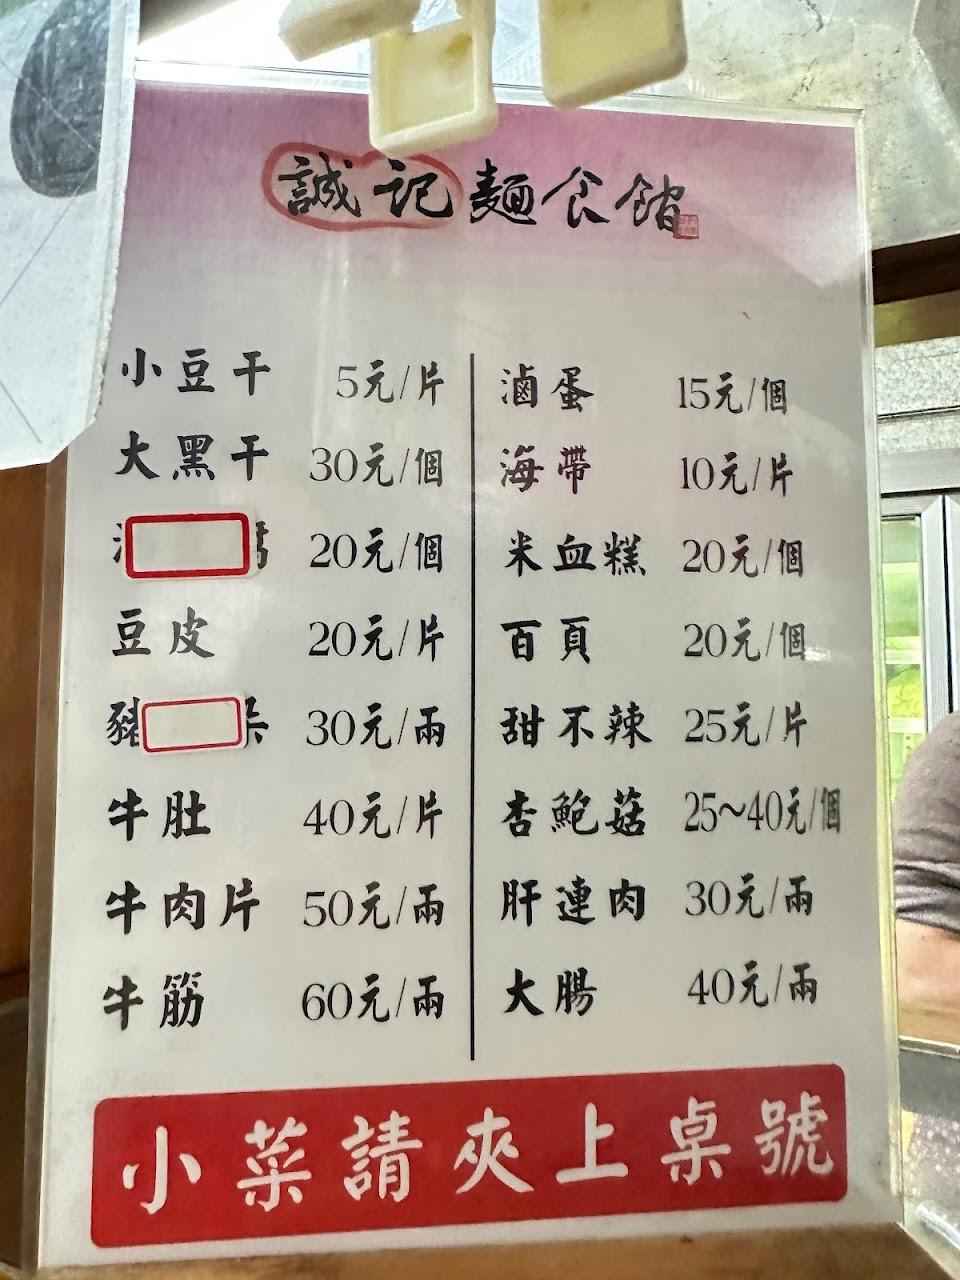 誠記麵食館
小豆干 5元/片
大黑干 30元/個
20元/個
豆皮 20元/片
豬 朵 30元/兩
牛肚 40元/片
牛肉片 50元/兩
牛筋 60元/兩
滷蛋 15元/個
海帶 10元/片
米血糕 20元/個
百頁 20元/個
甜不辣 25元/片
杏鮑菇 25~40元/個
肝連肉 30元/兩
大腸 40元/兩
小菜請夾上桌號